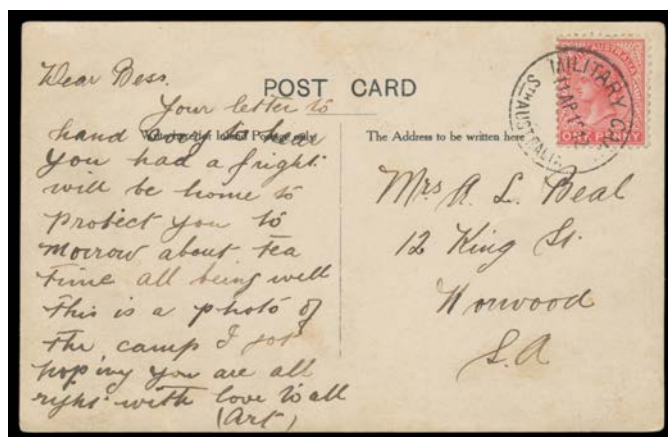 Dear Bess.
POST CARD
Your letter to
hand sorry to hear
you had a fright
will be home to
protect you to
morrow about tea
time all being well
this is a photo of
the camp I got
hoping you are all
right with love to all
(Art)
The Address to be written here
Mrs A. L. Beal
12 King St.
Norwood
S.A
AUSTRALIA
ONE PENNY
MILITARY
11 AP 1
STH AUSTRALIA